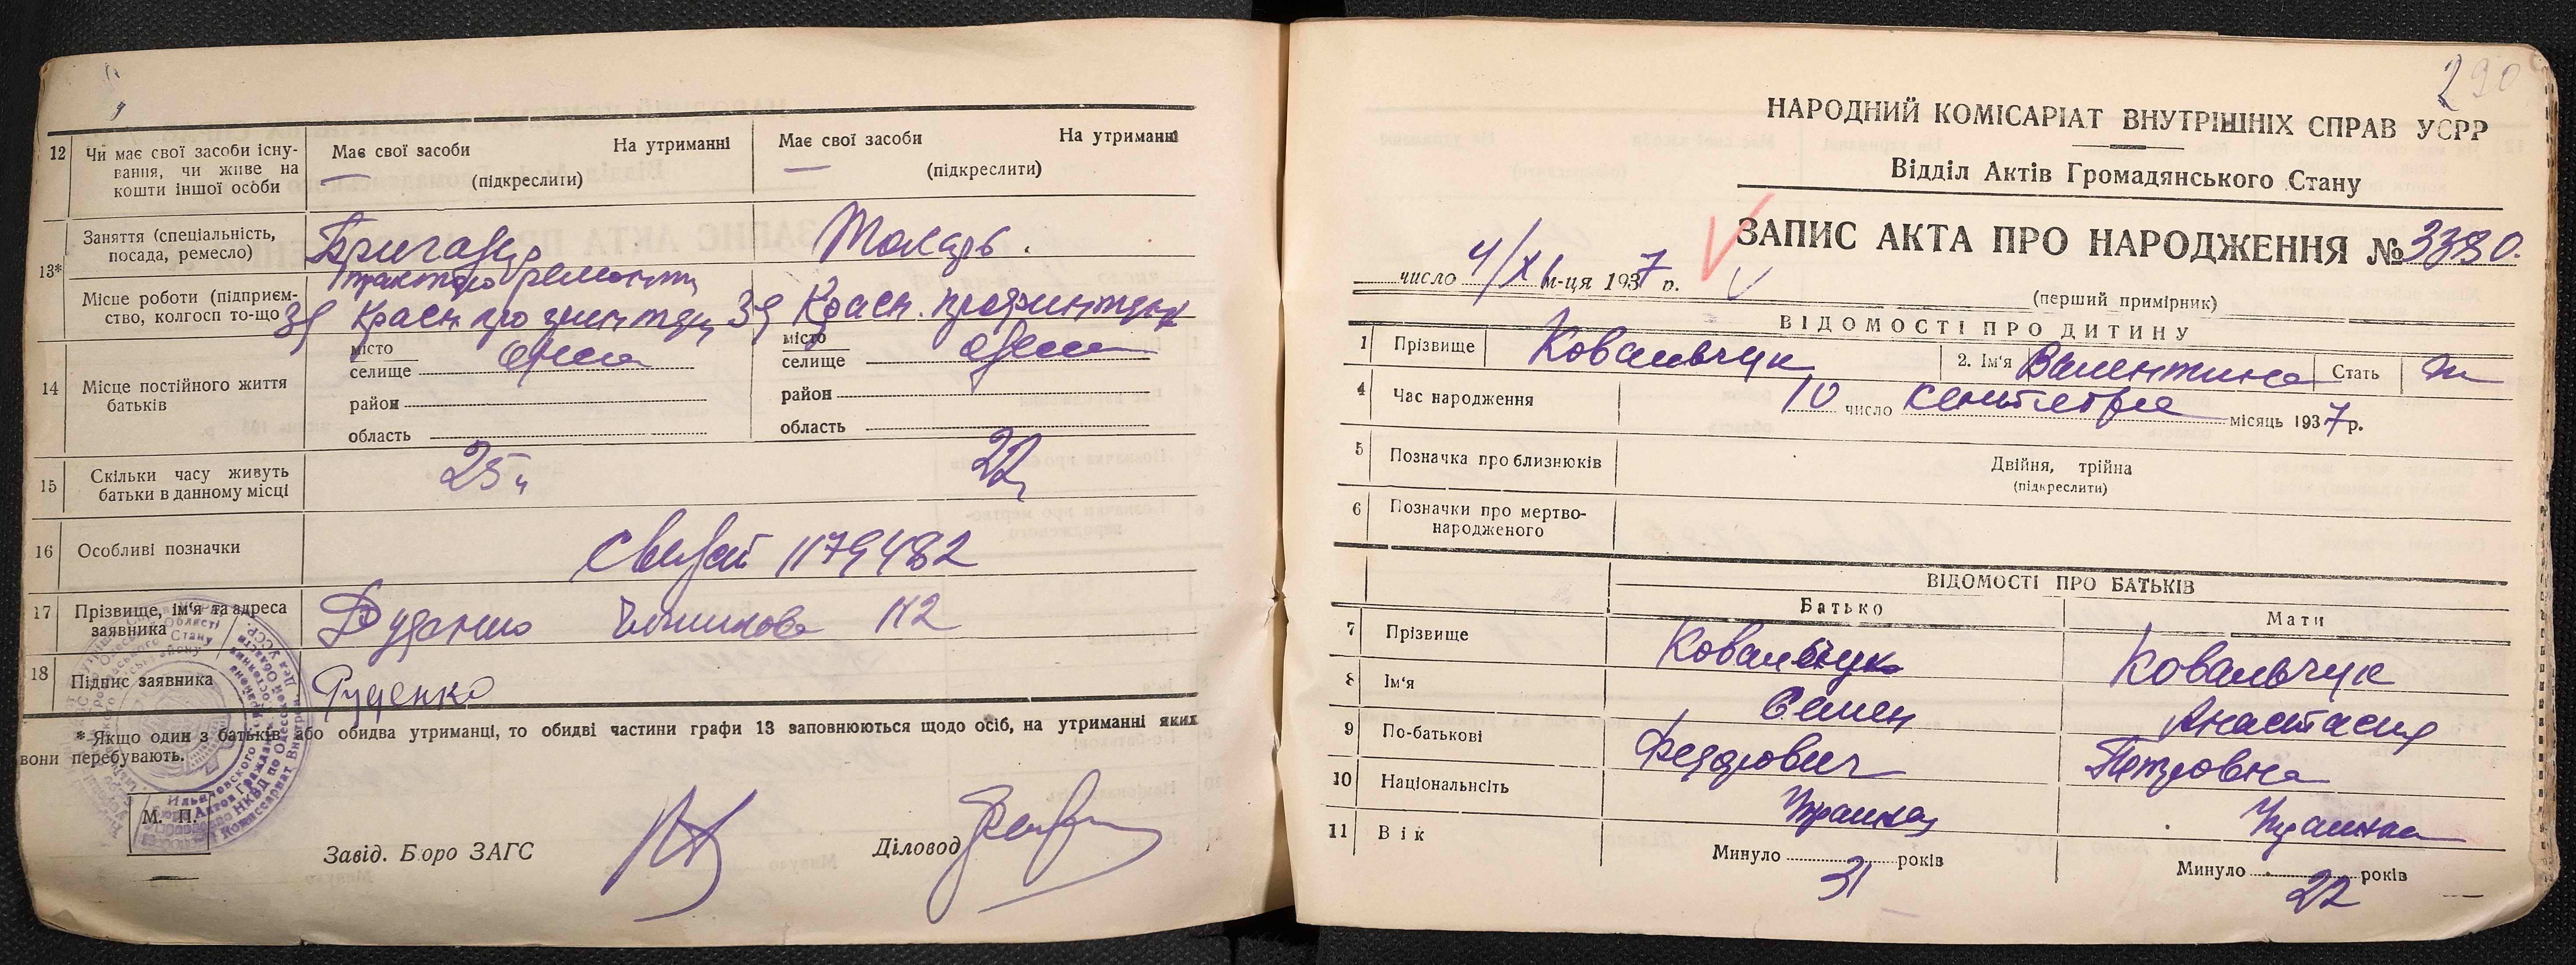 12 Чи має свої засоби існу-
вання, чи живе на
кошти іншої особи
Має свої засоби На утриманні
(підкреслити)
Має свої засоби На утриманні
(підкреслити)
13* Заняття (спеціальність,
посада, ремесло)
Бригадир
Токарь.
Місце роботи (підприєм-
ство, колгосп то-що
14 Місце постійного життя
батьків
місто
селище Одесса
район
область
місто
селище Одесса
район
область
15 Скільки часу живуть
батьки в данному місці
25
22
16 Особливі позначки
1179482
17 Прізвище, ім'я та адреса
заявника
№2
18 Підпис заявника
Руденко
* Якщо один з батьків або обидва утриманці, то обидві частини графи 13 заповнюються щодо осіб, на утриманні яких
вони перебувають.
М. П.
Завід. Бюро ЗАГС
Діловод
290
НАРОДНИЙ КОМІСАРІАТ ВНУТРІШНІХ СПРАВ УСРР
Відділ Актів Громадянського Стану
ЗАПИС АКТА ПРО НАРОДЖЕННЯ № 3380.
число 4/XI м-ця 1937 р.
(перший примірник)
ВІДОМОСТІ ПРО ДИТИНУ
1 Прізвище Ковальчук 2. Ім'я Валентина Стать ж
4 Час народження 10 число сентября місяць 1937 р.
5 Позначка про близнюків Двійня, трійна
(підкреслити)
6 Позначки про мертво-
народженого
ВІДОМОСТІ ПРО БАТЬКІВ
Батько Мати
7 Прізвище Ковальчук Ковальчук
8 Ім'я Семен Анастасия
9 По-батькові Федорович Петровна
10 Національнсіть
11 Вік Минуло 31 років Минуло 22 років